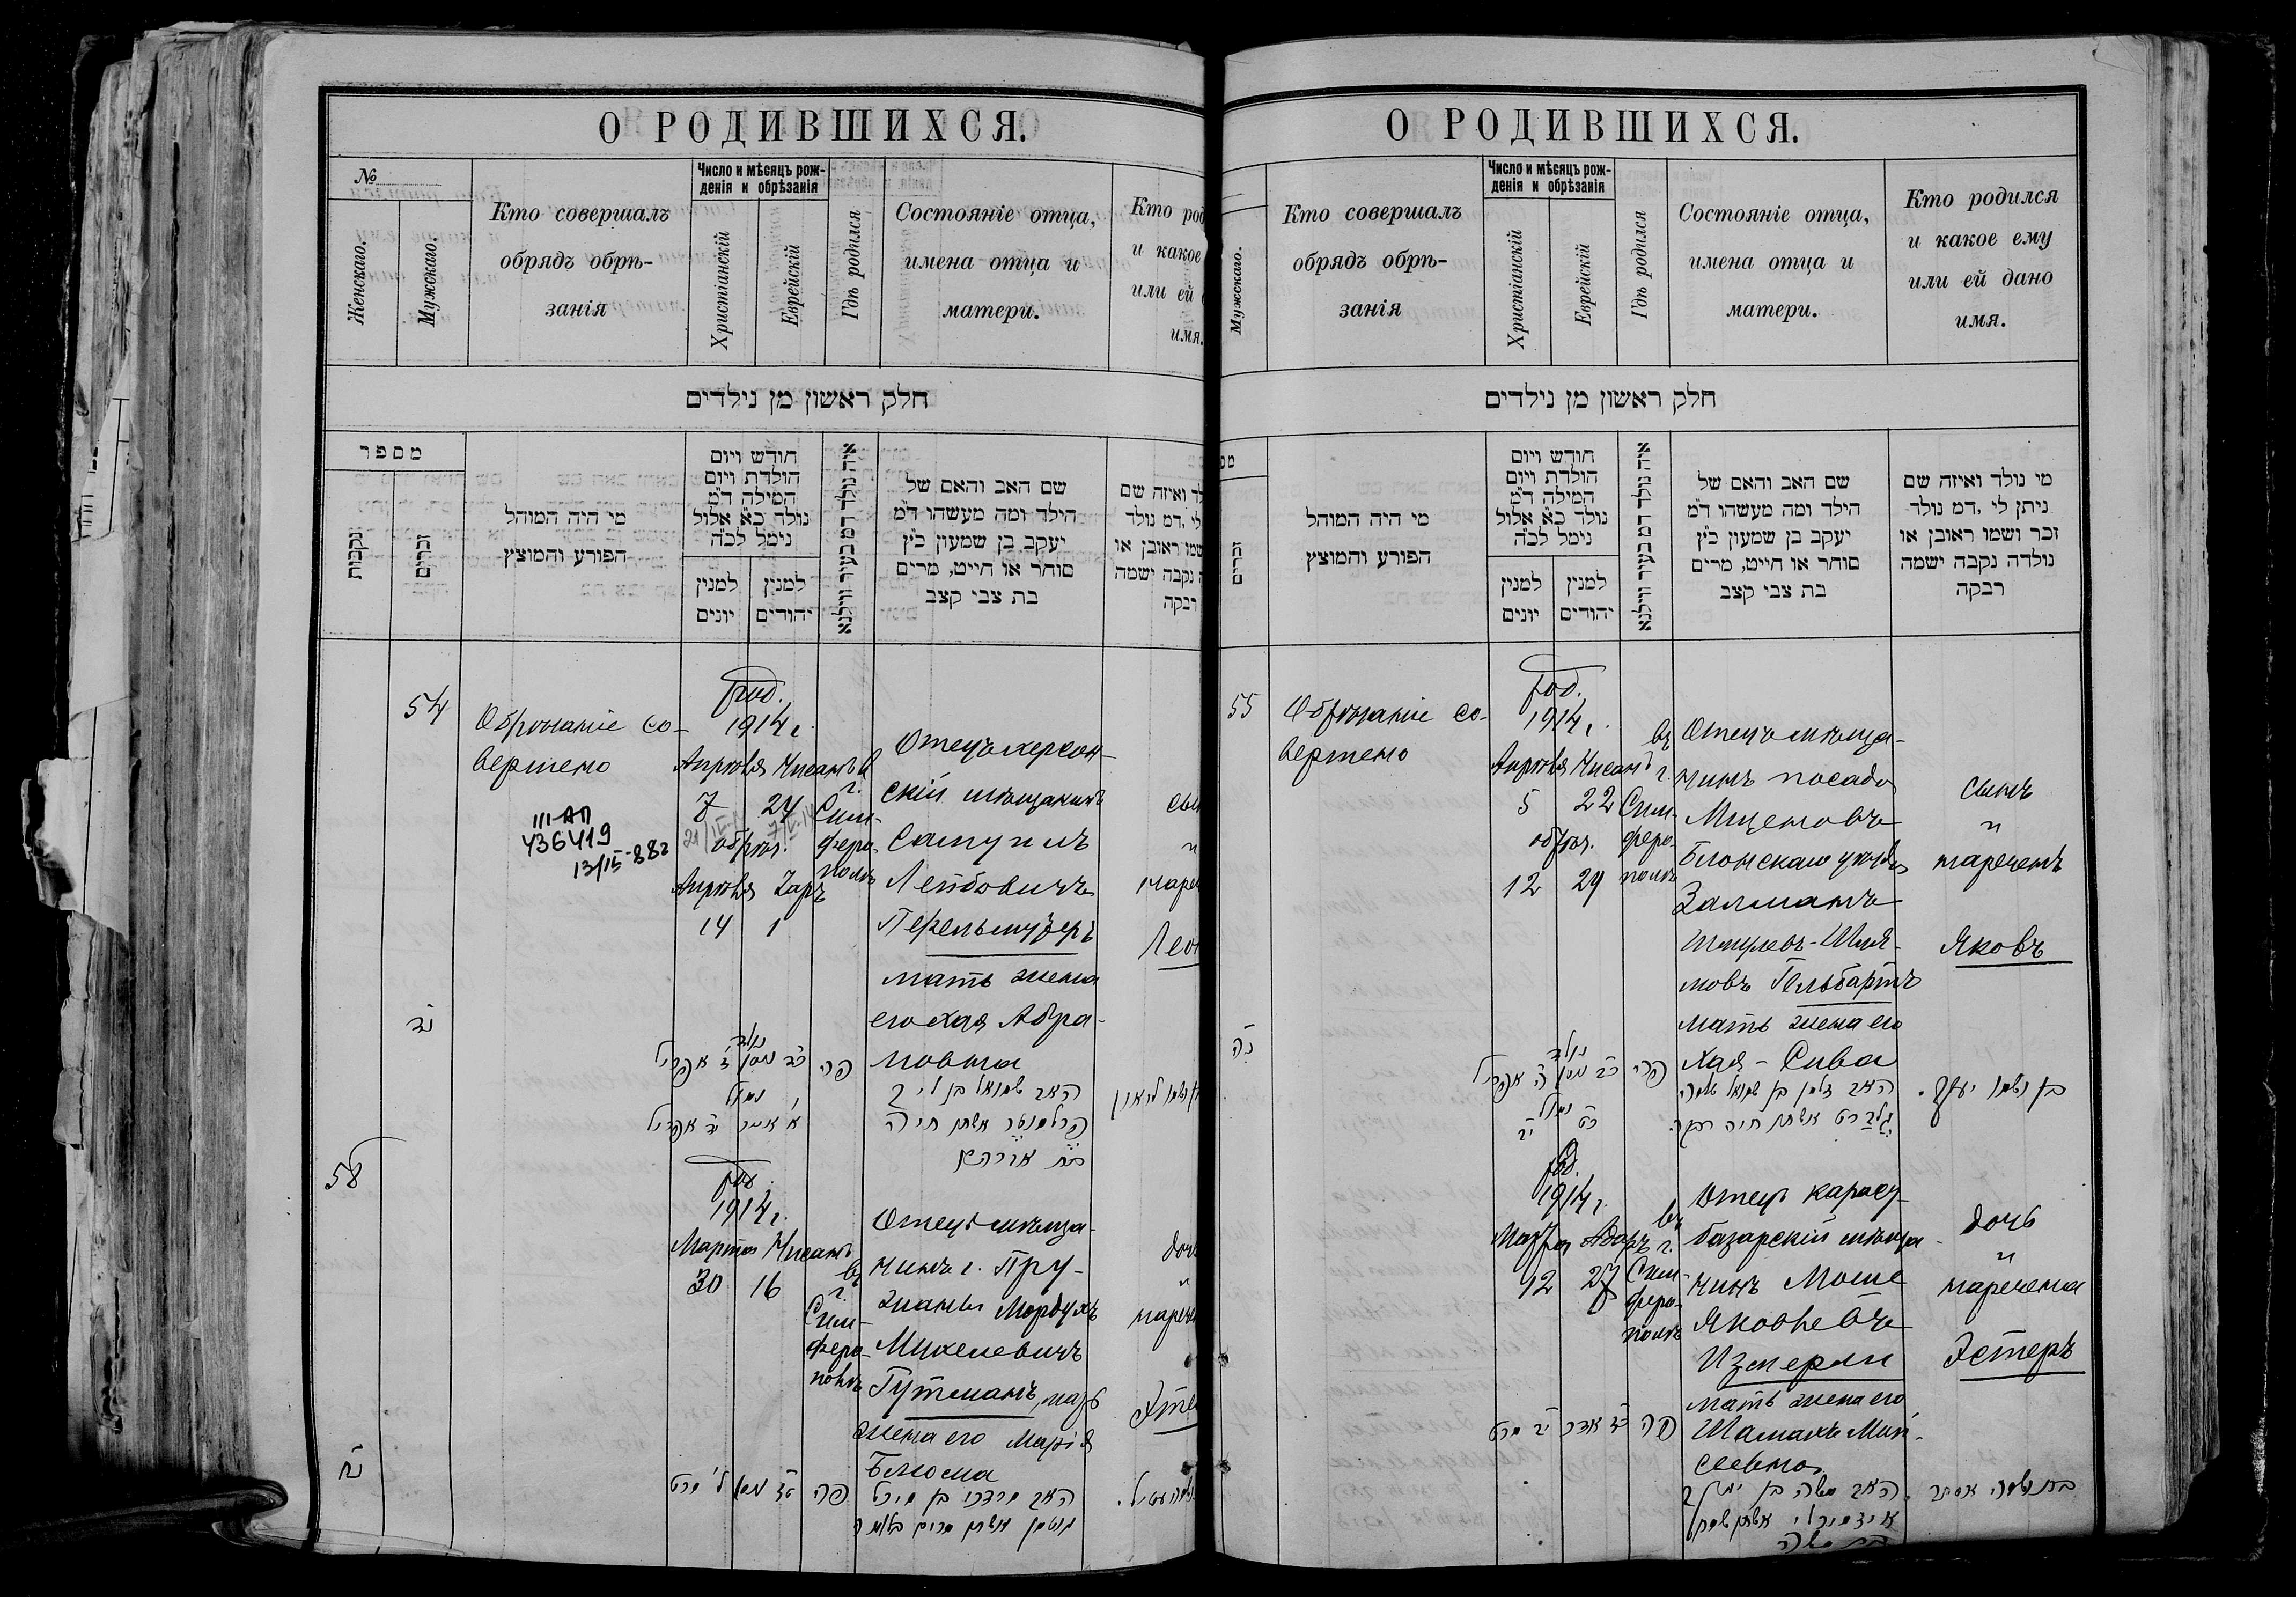 О РОДИВШИХСЯ.
№
Женскаго.
Мужскаго.
Кто совершалъ
обрядъ обрѣ-
занія
Число и мѣсяцъ рож-
денія и обрѣзанія
Христіанскій
Еврейскій
Гдѣ родился
Состояніе отца,
имена отца и
матери.
Кто род
и какое
или ей
имя.
חלק ראשון מן נילדים
מספר
נקבות
זכרים
מי היה המוהל
הפורע והמוצץ
חודש ויום
הולדת ויום
המילה ד"מ
נולד כ"א אלול
נימל לכ"ה
למנין
יונים
למנין
יהודים
איה נולד דמ בעיר ווילנא
שם האב והאם של
הילד ומה מעשהו ד"מ
יעקב בן שמעון כ"ץ
סוחר או חייט, מרים
בת צבי קצב
לד ואיזה שם
לי ,דמ נולד
שמו ראובן או
נקבה ישמה
רבקה
54
Обрѣзаніе со-
вершено
III-АП
436419
13/IV-88г
род.
1914 г.
Апрѣля Нисанъ
7 24
обрѣз.
Апрѣля Іаръ
14 1
в
г.
Сим-
феро-
полѣ
Отецъ херсон-
скій мѣщанинъ
Самуилъ
Лейбовичъ
Перельмутеръ
мать жена
его Хая Абра-
мовна
сын
и
нареч
Лео
נד
נולד
כד ניסן ז אפריל
נמול
א אייר יד אפריל
פה
האב שמואל בן ליב
פרלמוטר אשתו חיה
בת אברהם
58
род.
1914 г.
Марта Нисанъ
30 16
въ
г.
Сим-
феро-
полѣ
Отецъ мѣща-
нинъ г. Пру-
жаны Мордухъ
Михелевичъ
Гутманъ, мать
жена его Марія
Блюма
дочь
и
нарече
Эте
נח
טז ניסן ל מרט
פה
האב מרדכי בן מיכל
גוטמן אשתו מרים בלומה
О РОДИВШИХСЯ.
Мужскаго.
Кто совершалъ
обрядъ обрѣ-
занія
Число и мѣсяцъ рож-
денія и обрѣзанія
Христіанскій
Еврейскій
Гдѣ родился
Состояніе отца,
имена отца и
матери.
Кто родился
и какое ему
или ей дано
имя.
חלק ראשון מן נילדים
מס
זכרים
מי היה המוהל
הפורע והמוצץ
חודש ויום
הולדת ויום
המילה ד"מ
נולד כ"א אלול
נימל לכ"ה
למנין
יונים
למנין
יהודים
איה נולד דמ בעיר ווילנא
שם האב והאם של
הילד ומה מעשהו ד"מ
יעקב בן שמעון כ"ץ
סוחר או חייט, מרים
בת צבי קצב
מי נולד ואיזה שם
ניתן לי ,דמ נולד
זכר ושמו ראובן או
נולדה נקבה ישמה
רבקה
55
Обрѣзаніе со-
вершено
род.
1914 г.
Апрѣля Нисанъ
5 22
обрѣз.
12 29
въ
г.
Сим-
феро-
полѣ
Отецъ мѣща-
нинъ посада
Мщоновъ
Блонскаго уѣзда
Залманъ
Шмулевъ-Шля-
мовъ Гельбартъ
мать жена его
Хая-Рива
сынъ
и
нареченъ
Яковъ
נה
נולד
כב ניסן ה אפריל
נמול
כט יב
פה
האב זלמן בן שמואל שלמה
גלברט אשתו חיה רבקה
בן ושמו יעקב.
род.
1914 г.
Марта Адаръ
12 27
въ
г.
Сим-
феро-
полѣ
Отецъ карасу-
базарскій мѣща-
нинъ Моше
Яковлевъ
Измерли
мать жена его
Шамахъ Мои-
сеевна
дочь
и
наречена
Эстеръ
אדר יב מרט
פה
האב משה בן יעקב
איזמירלי אשתו שמח
בת משה
בת ושמה אסתר